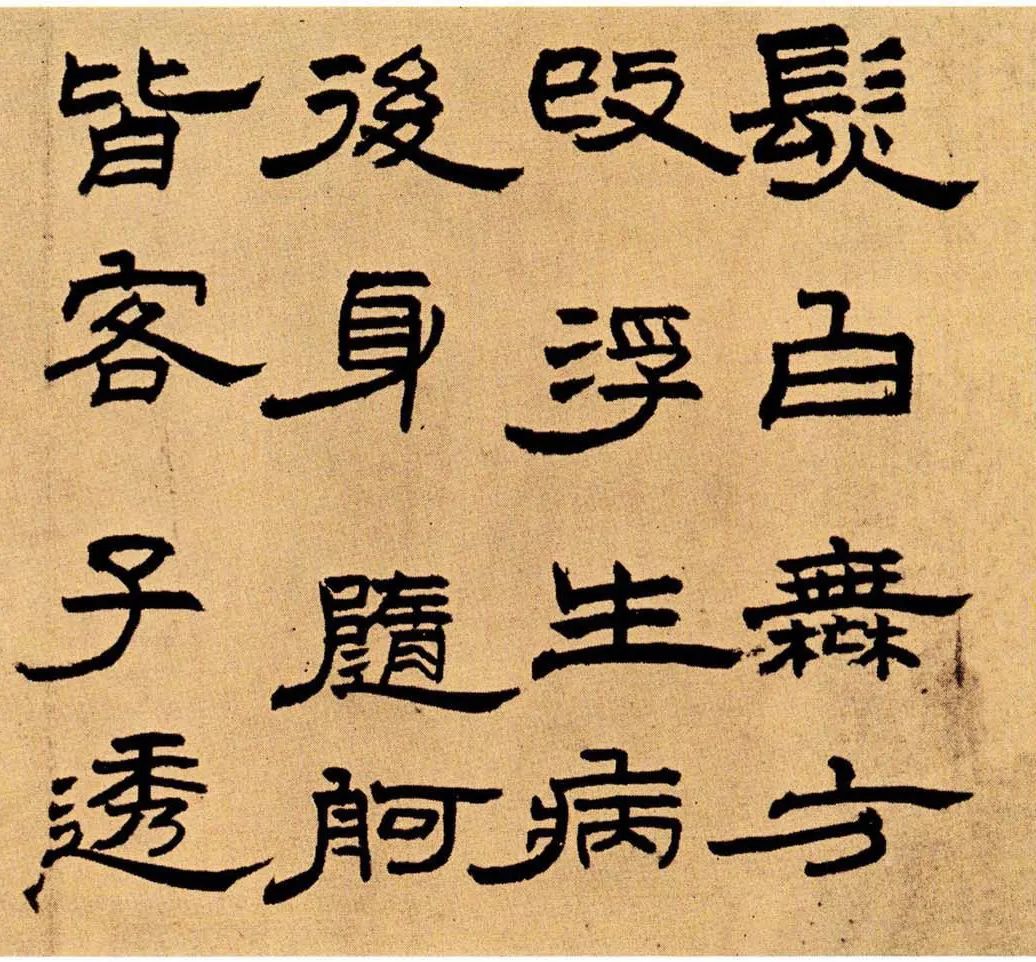 髮白無方
改浮生病
後身隨舸
皆客子透